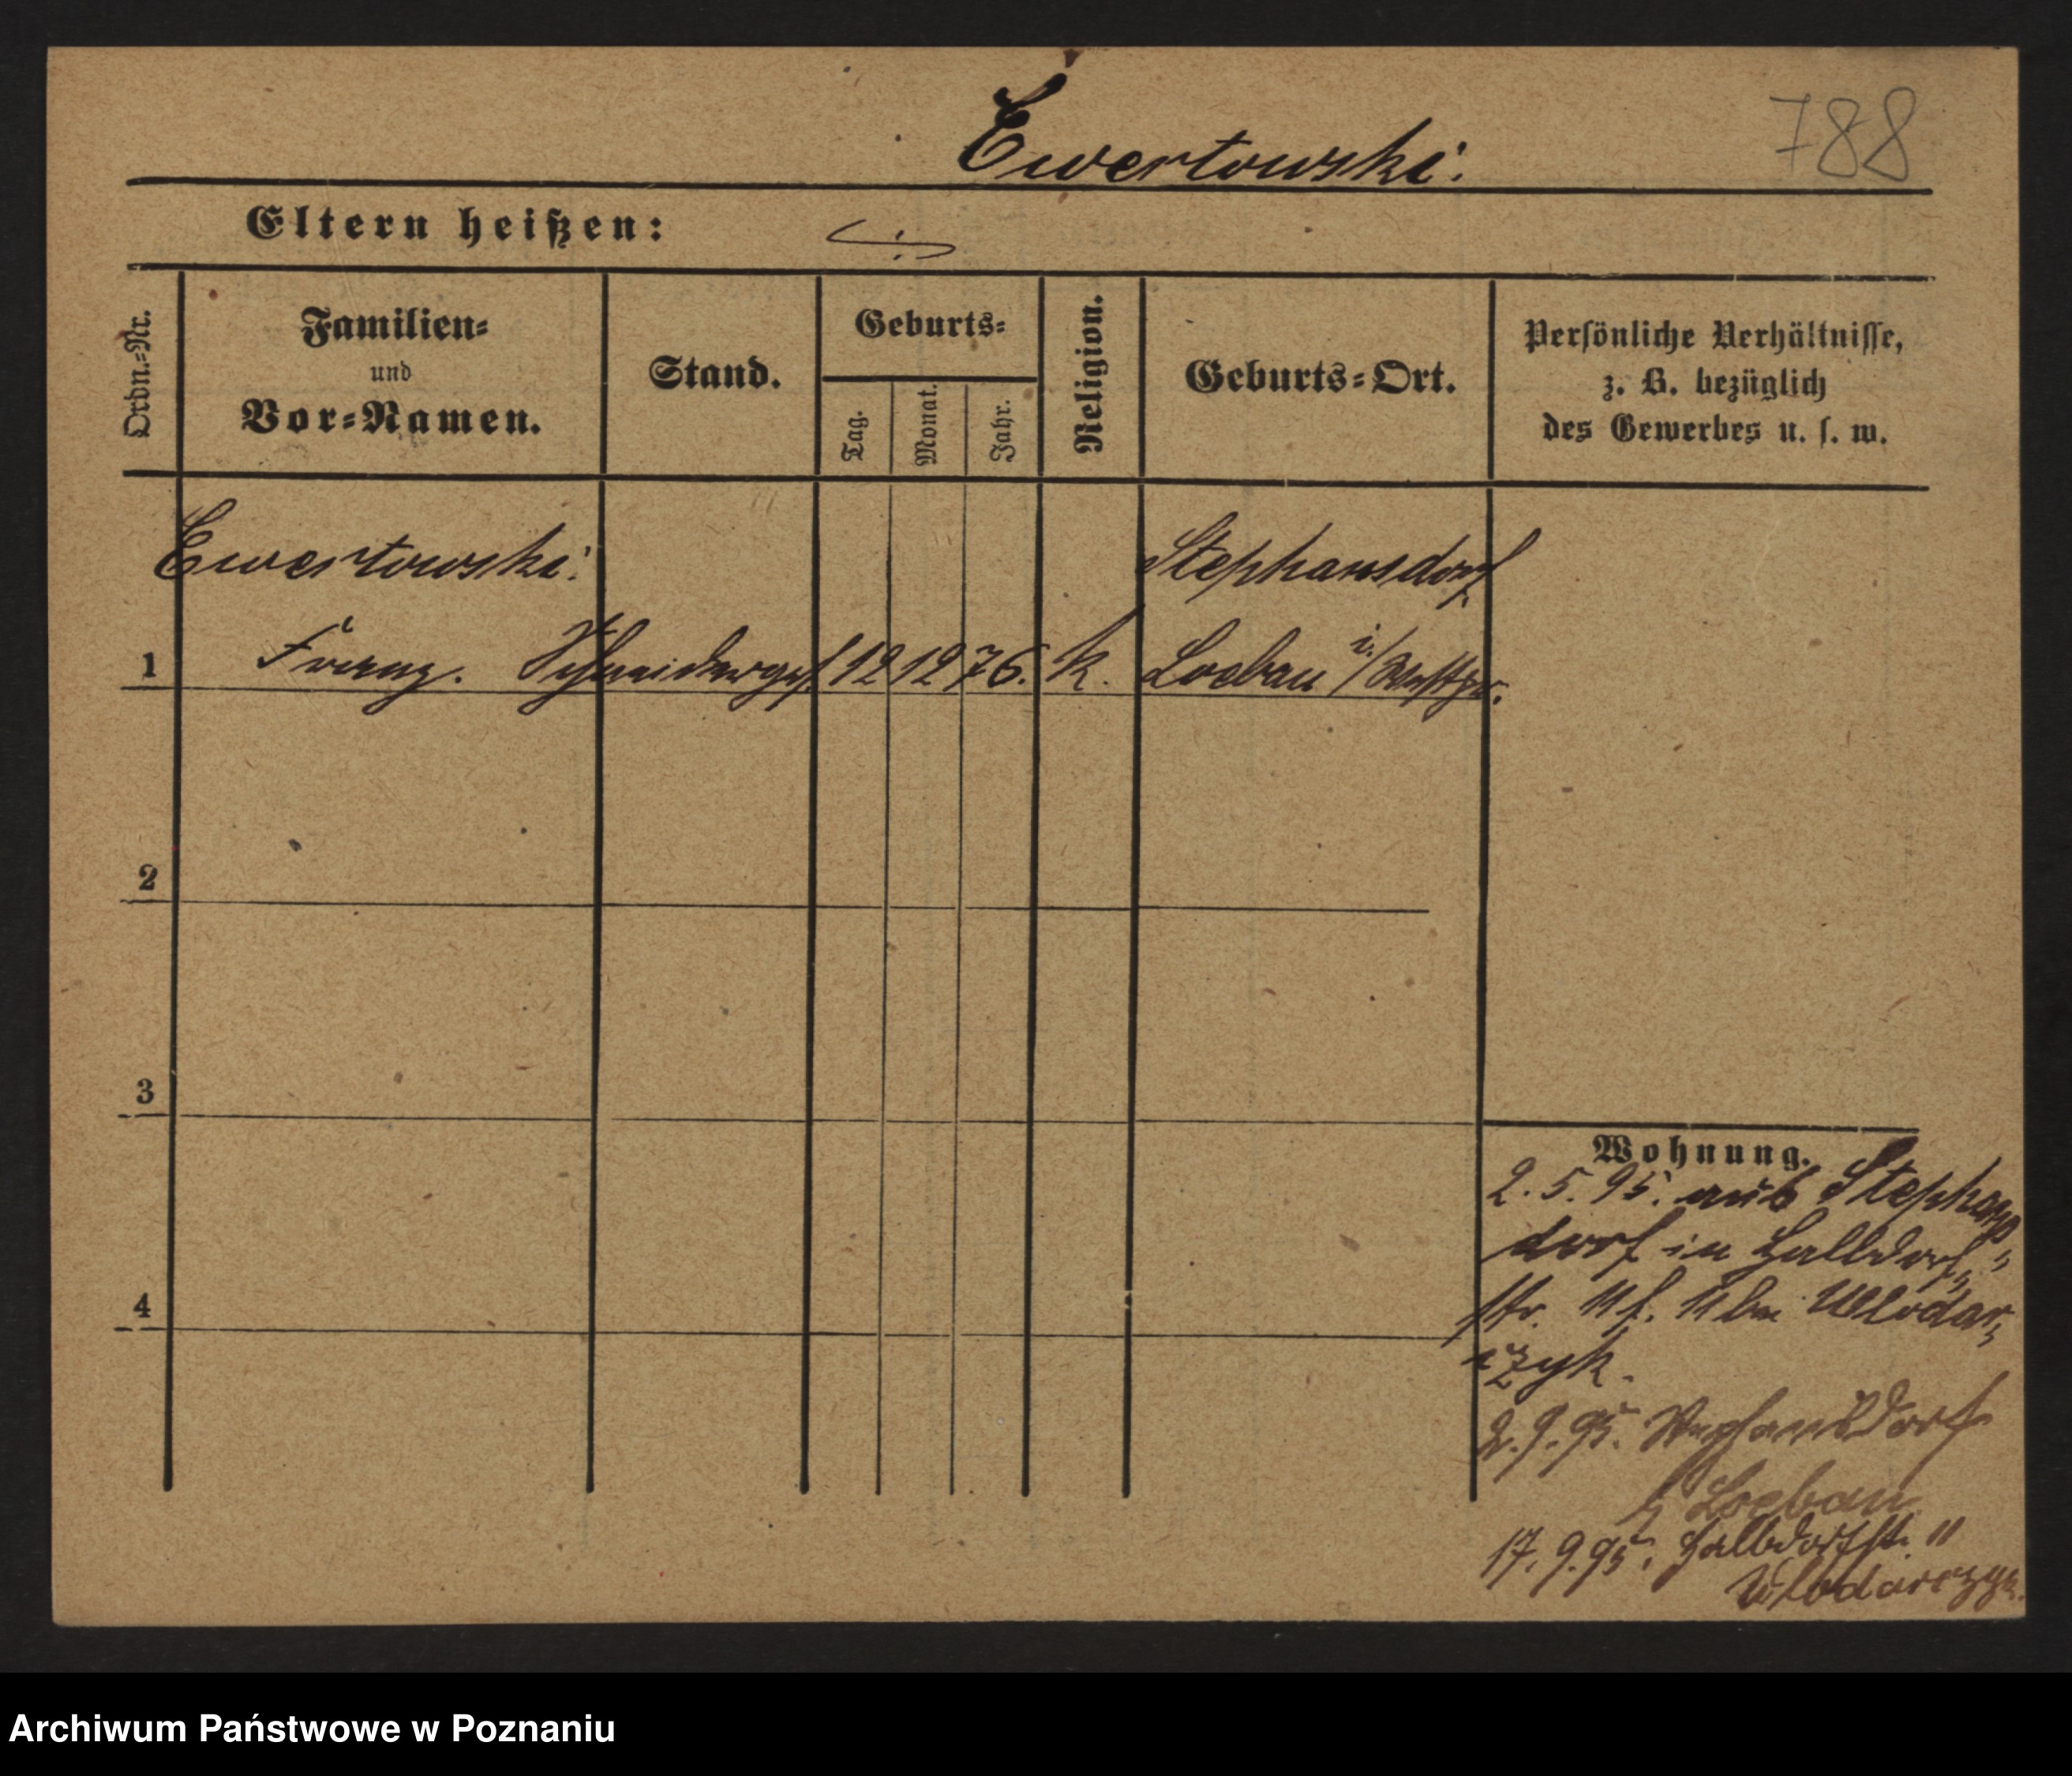 788
Ewertowski.
Eltern heißen:
Ordn.-Nr.
Familien-
und
Vor-Namen.
Stand.
Geburts-
Tag.
Monat.
Jahr.
Religion.
Geburts-Ort.
Persönliche Verhältnisse,
z. B. bezüglich
des Gewerbes u. s. w.
Ewertowski. Stephansdorf
1 Franz. Schneiderges. 12 12 76. k. Loebau i./Westpr.
2
3
4
Wohnung.
2. 5. 95. aus Stephans„
dorf in Halbdorf„
str. 11 bei Wlodar„
czyk.
2. 9. 95. Stephansdorf
Loebau
17. 9. 95. Halbdorfst. 11
Wlodarczyk.
Archiwum Państwowe w Poznaniu